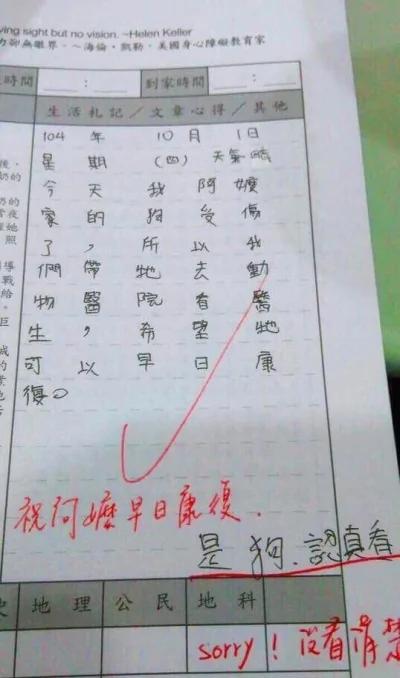 ving sight but no vision. ~Helen Keller
力卻無眼界。~海倫・凱勒,美國身心障礙教育家
時間 : 到家時間 :
生活札記/文章心得/其他
104年 10月 1日
星期(四) 天氣晴
今天我阿嬤
家的狗受傷
了,所以我
們帶牠去動
物醫院看醫
生,希望牠
可以早日康
復。
祝阿嬤早日康復.
是狗.認真看
地理 公民 地科
sorry! 沒看清楚